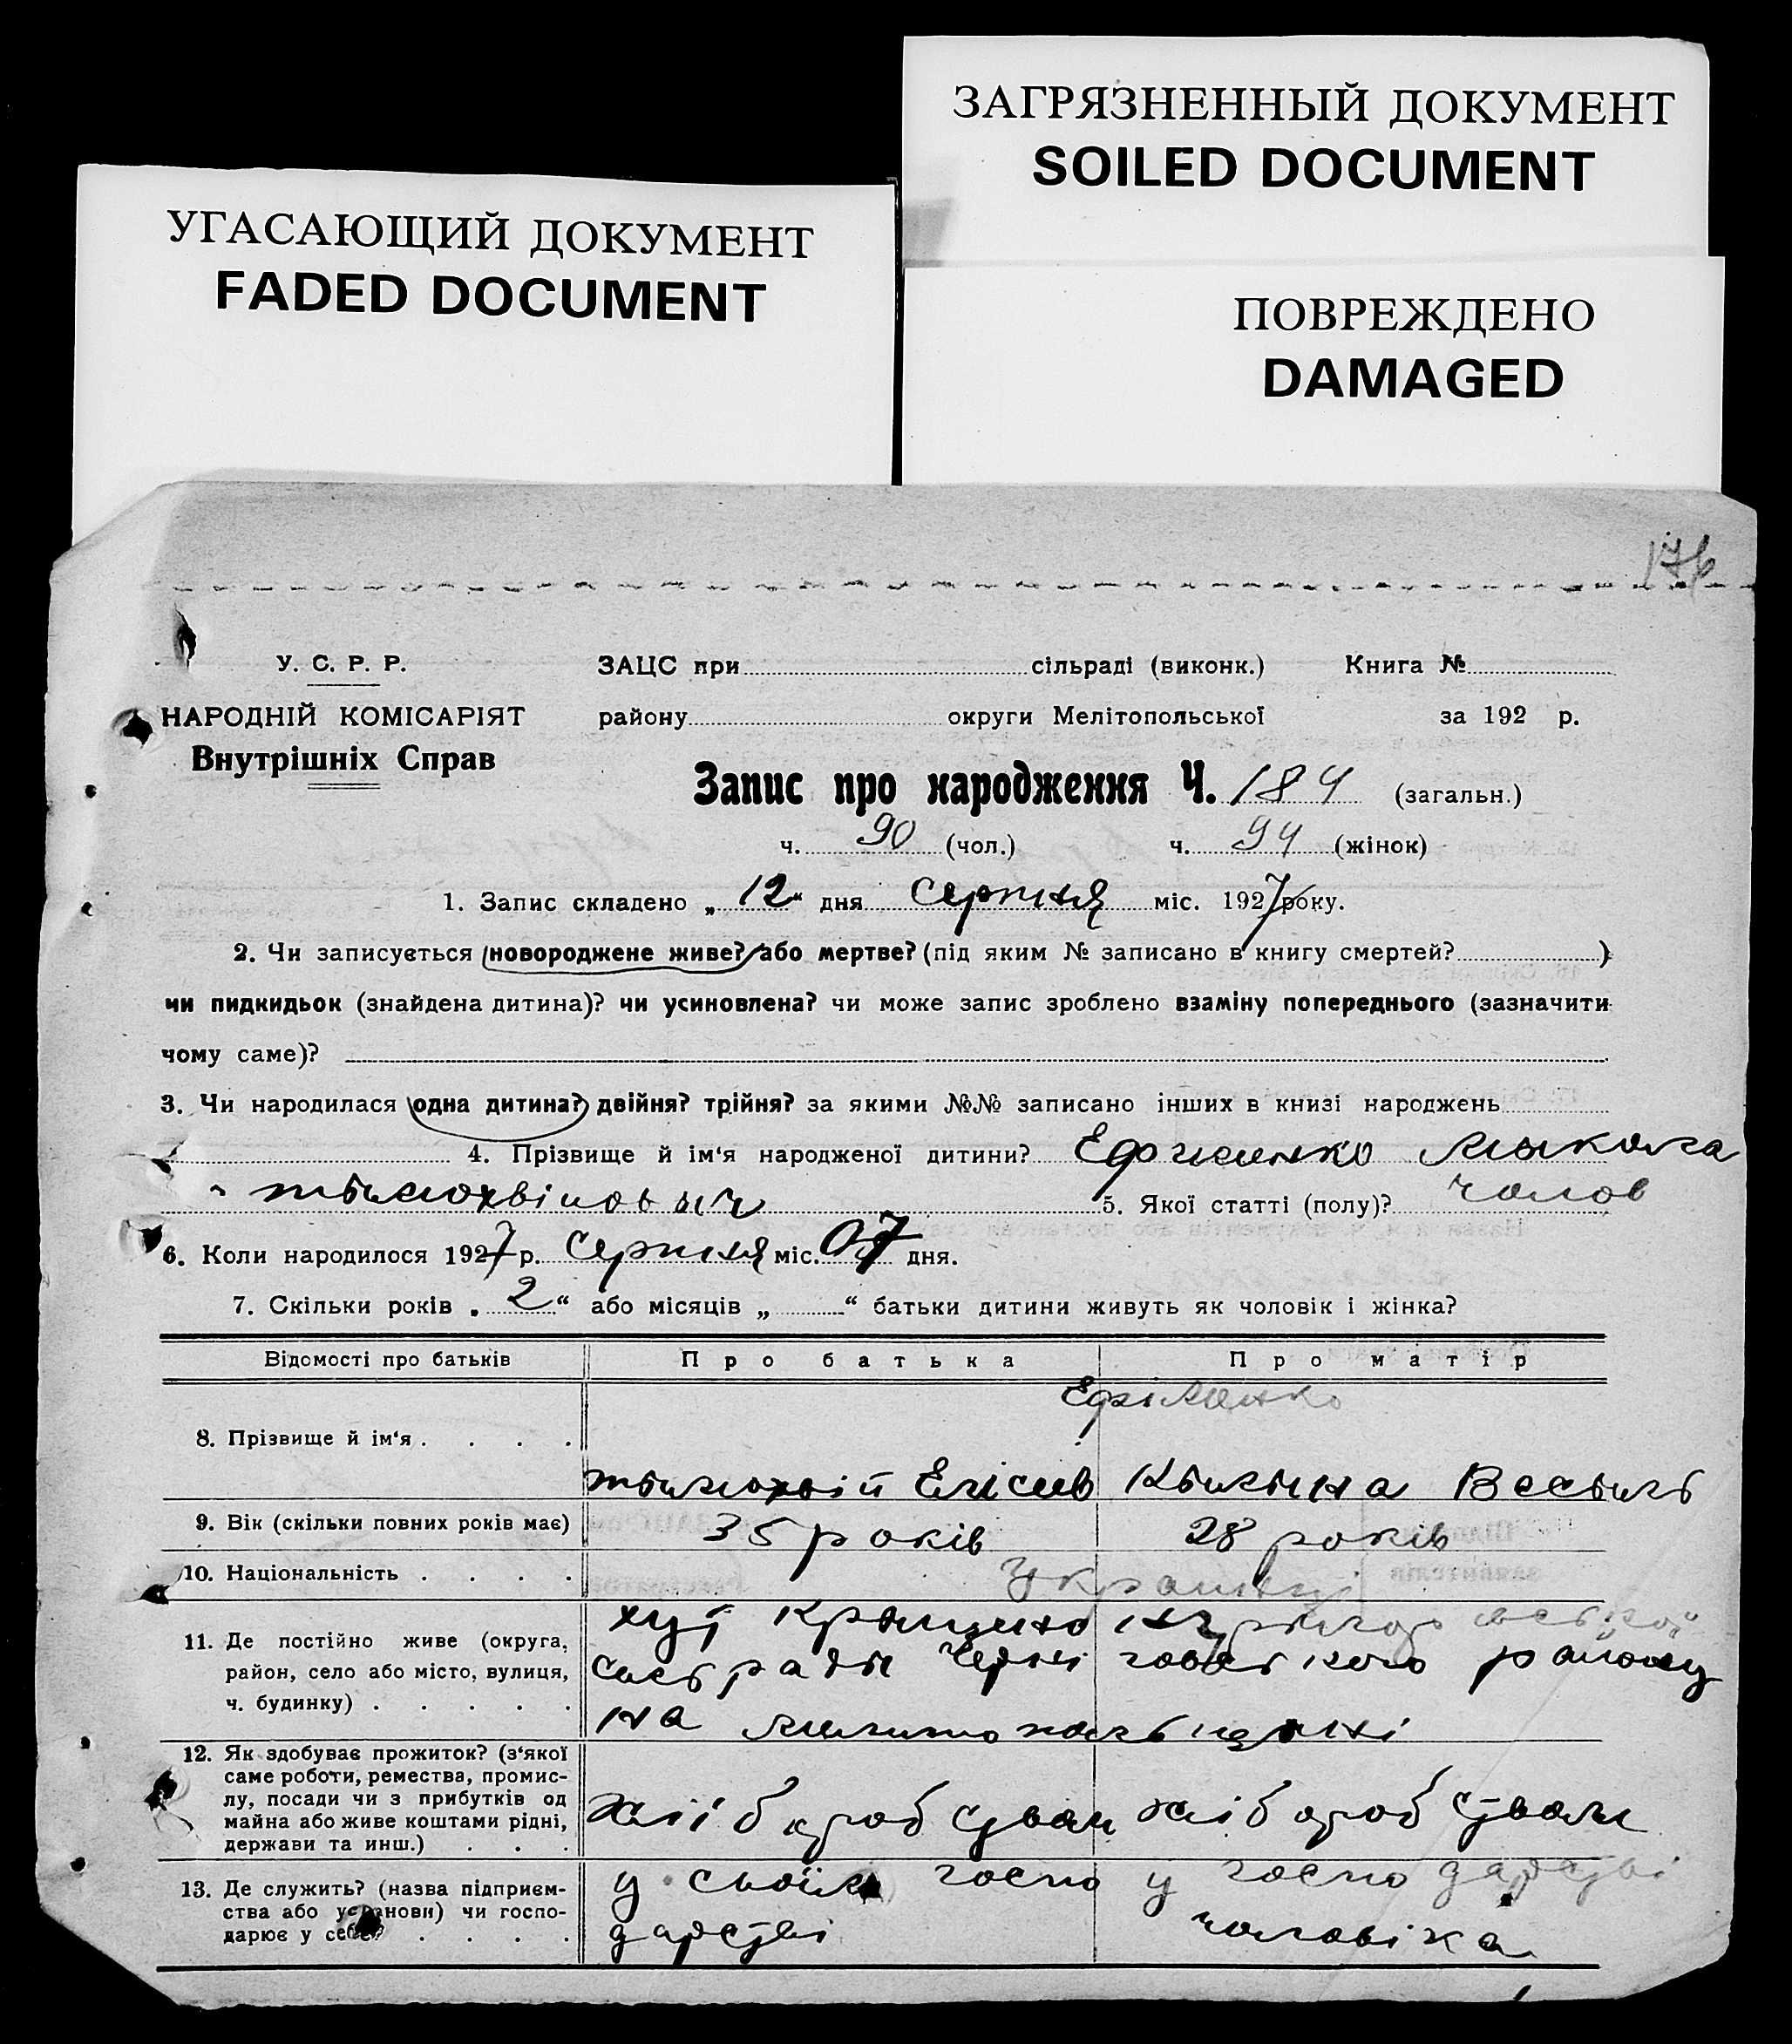 ЗАГРЯЗНЕННЫЙ ДОКУМЕНТ
SOILED DOCUMENT
УГАСАЮЩИЙ ДОКУМЕНТ
FADED DOCUMENT
ПОВРЕЖДЕНО
DAMAGED
176
У. С. Р. Р.
НАРОДНІЙ КОМІСАРІЯТ
Внутрішніх Справ
ЗАЦС при сільраді (виконк.) Книга №
району округи Мелітопольської за 192 р.
Запис про народження Ч. 184 (загальн.)
ч. 90 (чол.) ч. 94 (жінок)
1. Запис складено „ 12 “ дня Серпня міс. 1927 року.
2. Чи записується новороджене живе? або мертве? (під яким № записано в книгу смертей? )
чи пидкидьок (знайдена дитина)? чи усиновлена? чи може запис зроблено взаміну попереднього (зазначити
чому саме)?
3. Чи народилася одна дитина? двійня? трійня? за якими №№ записано інших в книзі народжень
4. Прізвище й ім‘я народженої дитини? Ефименко Мыкола
тымохвіиовыч 5. Якої статті (полу)? чолов
6. Коли народилося 1927 р. Серпня міс. 07 дня.
7. Скільки років „ 2 “ або місяців „ “ батьки дитини живуть як чоловік і жінка?
Відомості про батьків Про батька Про матір
Ефіменко
8. Прізвище й ім‘я . . . .
тымохвій Елісив Кылына Весыль
9. Вік (скільки повних років має) 35 років 28 років
10. Національність . . . . Украинці
11. Де постійно живе (округа,
район, село або місто, вулиця,
ч. будинку) . . . . .
хут
сільради Черні говського району
на
12. Як здобуває прожиток? (з‘якої
саме роботи, ремества, промис-
лу, посади чи з прибутків од
майна або живе коштами рідні,
держави та инш.) . . .
хліборобством хліборобством
13. Де служить? (назва підприєм-
ства або установи) чи госпо-
дарює у себе? . . . .
у своїм госпо у господарстві
дарстві чоловіка